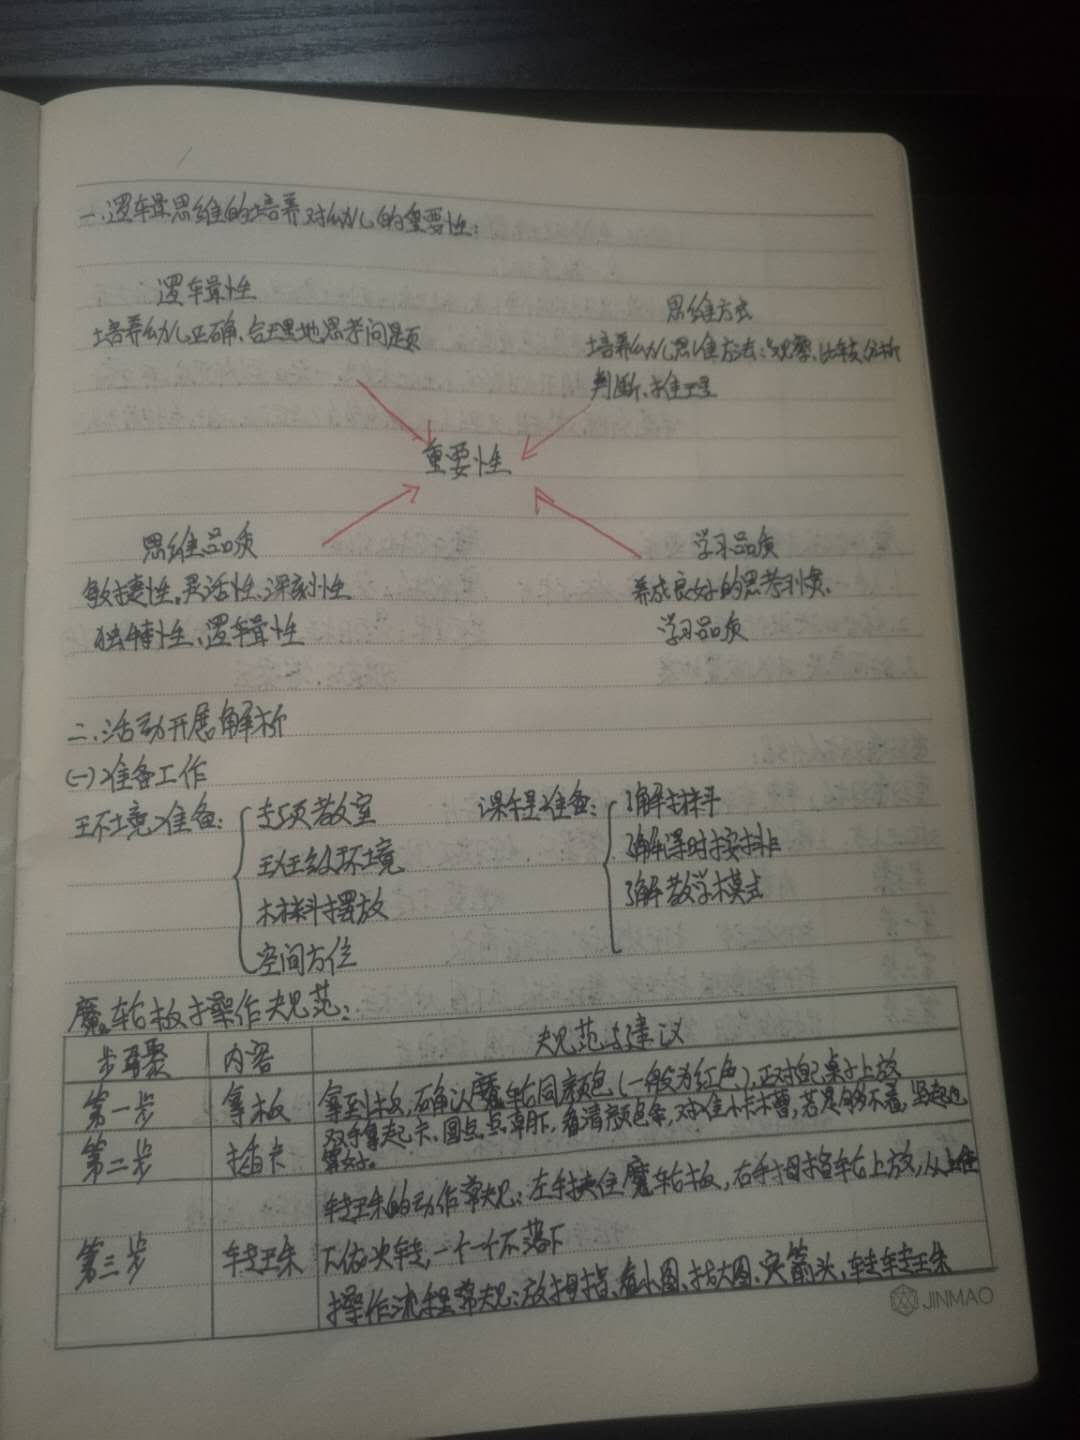 一.逻辑思维的培养对幼儿的重要性:
逻辑性
培养幼儿正确、合理地思考问题
思维方式
培养幼儿思维方法:观察、比较、分析
判断、推理
重要性
思维品质
敏捷性、灵活性、深刻性
独特性、逻辑性
学习品质
养成良好的思考习惯、
学习品质
二.活动开展解析
(一)准备工作
环境准备:
专项教室
班级环境
材料摆放
空间方位
课程准备:
了解材料
了解课时安排
了解教学模式
魔轮板操作规范:
步骤 内容 规范与建议
第一步 拿板 拿到板,确认魔轮同颜色(一般为红色),正对自己桌子上放
第二步 插卡 双手拿起卡、圆点点朝下,看清颜色条,对准小卡槽,若是够不着,竖起也
算好。
转珠的动作常规:左手扶住魔轮板,右手拇指轮右上放,从上往
第三步 转珠 下依次转,一个一个不落下
操作流程常规:放拇指、看小图、找大图、定箭头、转转珠
JINMAO